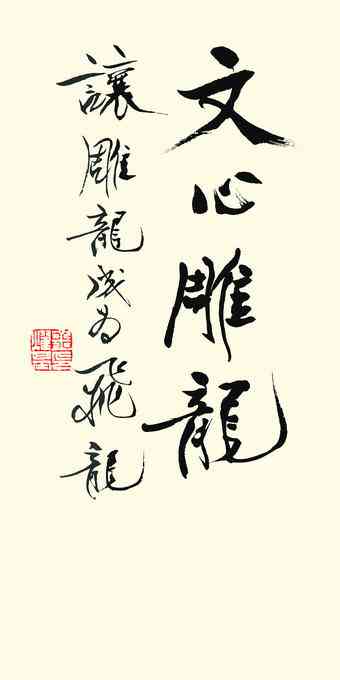 文心雕龍
讓雕龍成為飛龍